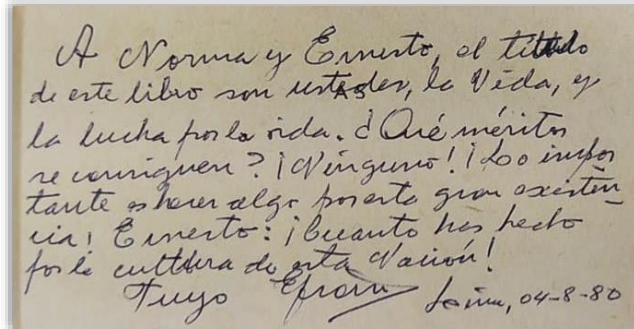 A Norma y Ernesto, el título
de este libro son ustedes, la Vida, y
la lucha por la vida. ¿Qué méritos
se consiguen? ¡Ninguno! ¡Lo impor
tante es hacer algo por esta gran existen
cia! Ernesto: ¡Cuanto has hecho
por la cultura de esta Nación!
Tuyo Efraín Lima, 04-8-80